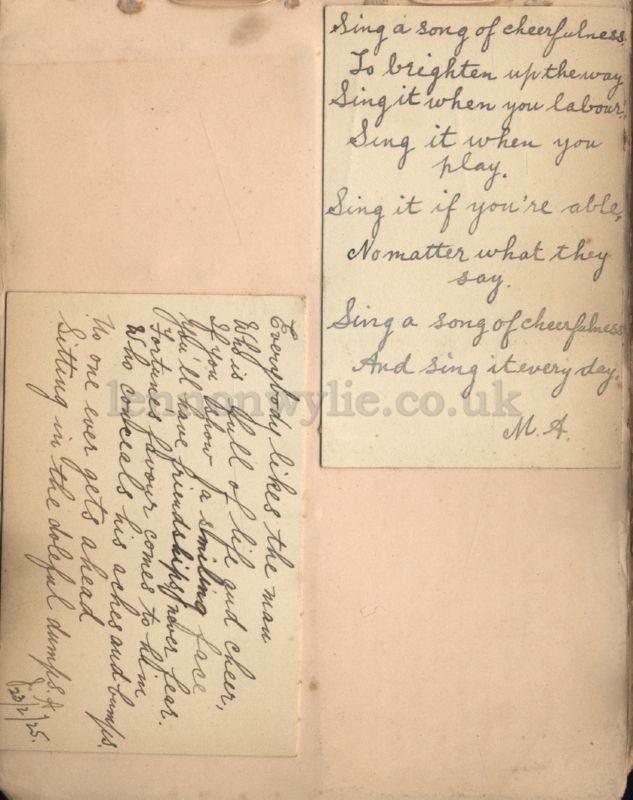 Sing a song of cheerfulness
To brighten up the way
Sing it when you labour,
Sing it when you
play.
Sing it if you're able,
No matter what they
say.
Sing a song of cheerfulness
And sing it every day.
M. A.
Everybody likes the man
Who is full of life and cheer,
If you show a smiling face
You'll have friendships never fear.
Fortunes favour comes to him
Who conceals his aches and bumps.
No one ever gets ahead
Sitting in the doleful dumps.
23/2/25.
lennonwylie.co.uk